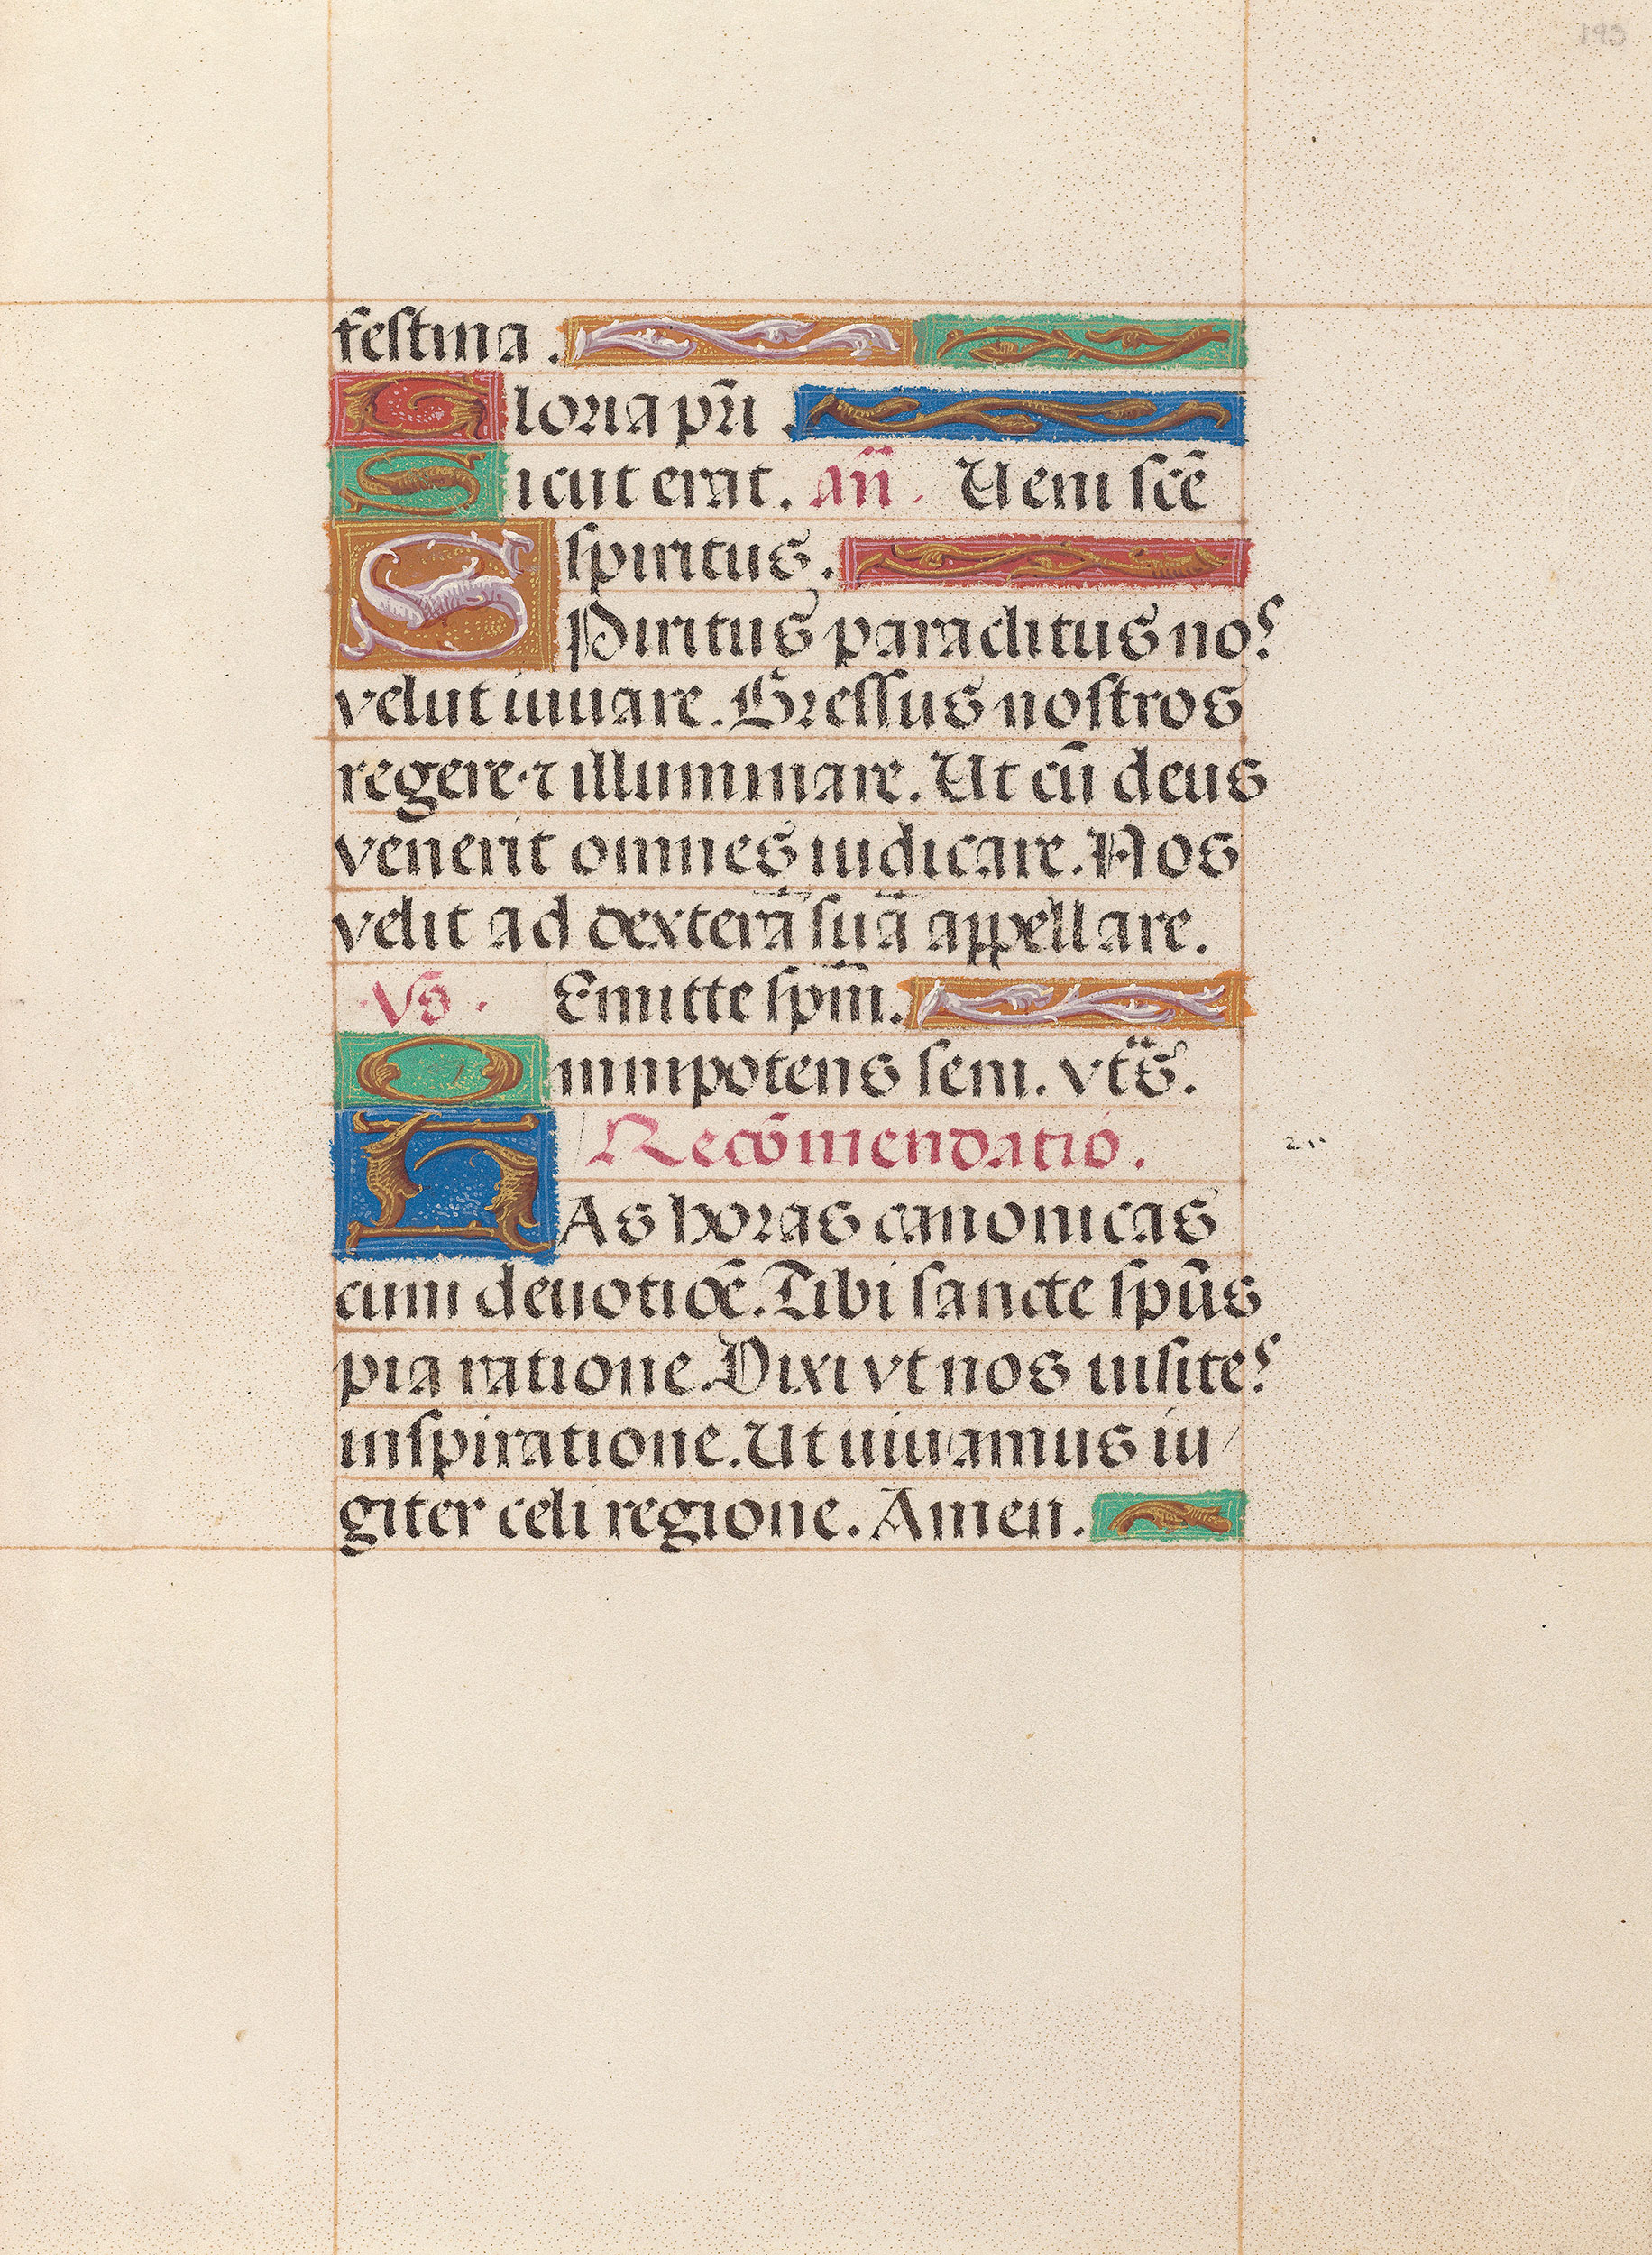 193
festina .
Gloria pr̄i .
Sicut erat. an̄. Ueni scē
spiritus.
SPiritus paraclitus noˢ
velut iuuare. Gressus nostros
regere·⁊ illuminare. Ut cū deus
venerit omnes iudicare. Nos
velit ad dexterā suā appellare.
Vs̄. Emitte spm̄.
Omnipotens sem. vts̄.
Recōmendatio.
HAs horas canonicas
cum deuotiōe. Tibi sancte spūs
pia ratione. Dixi vt nos uisiteˢ
inspiratione. Ut uiuamus iu/
giter celi regione. Amen.